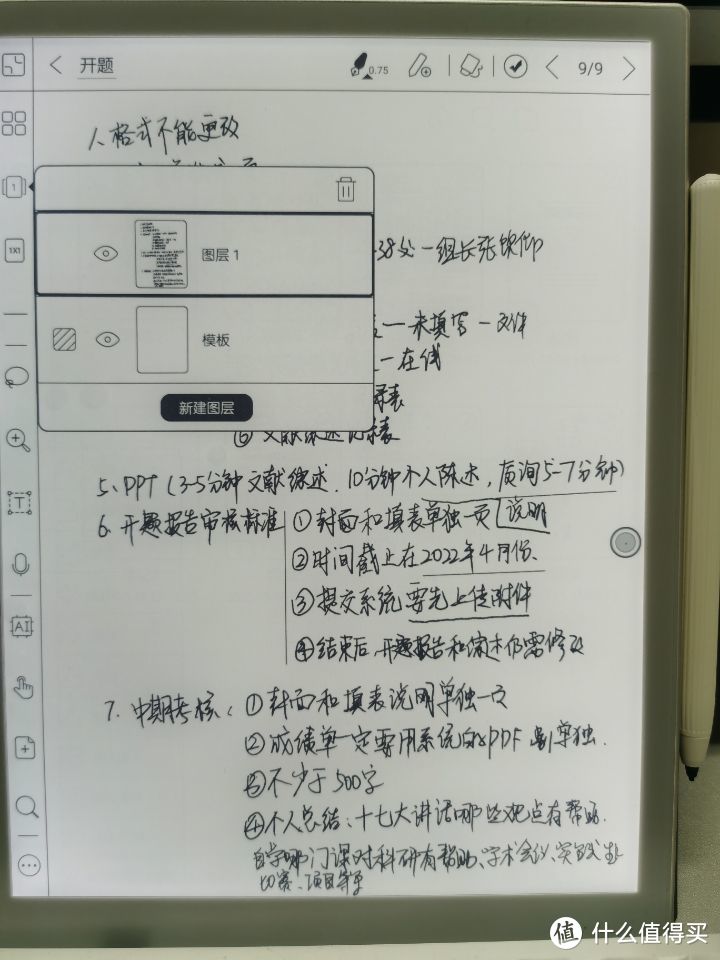 开题
0.75
9/9
1、格式不能更改
1
图层 1
38处一组长张
1X1
模板
一未填写一文件
一在线
新建图层
录表
⑥ 文献综述记录表
5、PPT (3-5分钟文献综述, 10分钟个人陈述, 质询5-7分钟)
6、开题报告审核标准 ①封面和填表单独一页 说明
②时间截止在2022年4月份、
③提交系统要先上传附件
④结束后、开题报告和综述仍需修改
7、中期考核: ①封面和填表说明单独一页
②成绩单一定要用系统的PDF 单独.
③不少于500字
④个人总结:十七大讲话哪些观点有帮助.
自学哪门课对科研有帮助、学术会议、实践
比赛、项目等
T
AI
值 什么值得买